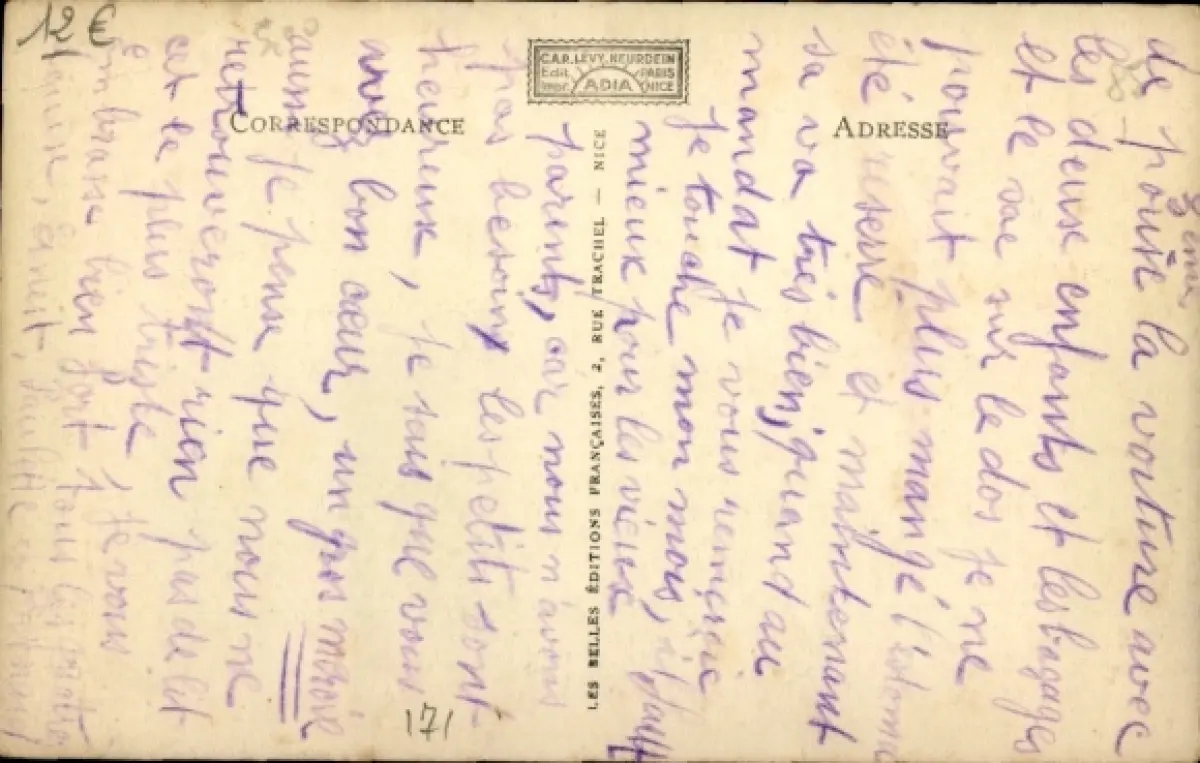 12 €
CORRESPONDANCE
ADRESSE
C.A.P. LÉVY, NEURDEIN
Edit. PARIS
Impr. NICE
ADIA
LES BELLES ÉDITIONS FRANÇAISES, 2, RUE TRACHEL — NICE
3 ème
de pousse la voiture avec
les deuse enfants et les bagages
et le sac sur le dos je ne
pouvait plus mangé l'estomac
été resserré et maintenant
sa va très bien, quand au
mandat je vous remerçie
je touche mon mois, il faut
mieux pour les vieux
parents, car nous n'avons
pas besoins, les petits sont
heureux, je sais que vous
avez bon cœur, un gros merçie
je pense que nous ne
retrouveront rien
est le plus triste je vous
embrasse bien fort, tous les petits
171